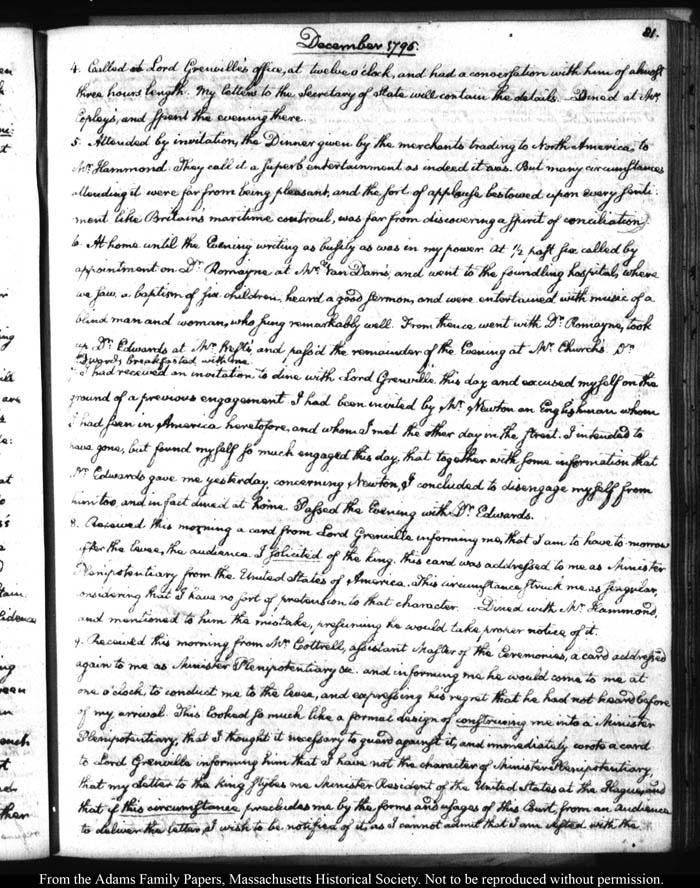 81.
December 1795.
4. Called at Lord Grenville's office, at twelve o'clock, and had a conversation with him of almost
three hours length. My letters to the Secretary of State will contain the details. Dined at Mr.
Copleys, and spent the evening there.
5. Attended by invitation, the Dinner given by the merchants trading to North America, to
Mr. Hammond. They call it a superb entertainment as indeed it was. But many circumstances
attending it were far from being pleasant, and the sort of applause bestowed upon every senti-
ment like Britain's maritime controul, was far from discovering a spirit of conciliation.
6. At home until the Evening writing as busily as was in my power. At ½ past six called by
appointment on Dr. Romayne at Mr. Van Dam's, and went to the foundling hospital, where
we saw a baptism of six children, heard a good sermon, and were entertained with music of a
blind man and woman, who sung remarkably well. From thence went with Dr. Romayne, took
up Dr. Edwards at Mr. West's, and pass'd the remainder of the Evening at Mr. Church's. Dr.
Edwards breakfasted with me.
7. I had received an invitation to dine with Lord Grenville this day and excused myself on the
ground of a previous engagement. I had been invited by Mr. Newton an Englishman whom
I had seen in America heretofore, and whom I met the other day in the street. I intended to
have gone, but found myself so much engaged this day, that together with some information that
Dr. Edwards gave me yesterday, concerning Newton, I concluded to disengage myself from
him too, and in fact dined at home. Passed the Evening with Dr. Edwards.
8. Received this morning a card from Lord Grenville informing me, that I am to have to-morrow
after the Levee, the audience I solicited of the King. this card was addressed to me as Minister
Plenipotentiary from the United States of America. This circumstance struck me as singular,
considering that I have no sort of pretension to that character. Dined with Mr. Hammond,
and mentioned to him the mistake, presuming he would take proper notice of it.
9. Received this morning from Mr. Cottrell, assistant Master of the Ceremonies, a card addressed
again to me as Minister Plenipotentiary &c. and informing me he would come to me at
one o'clock to conduct me to the Levee, and expressing his regret that he had not heard before
of my arrival. This looked so much like a formal design of construing me into a Minister
Plenipotentiary, that I thought it necessary to guard against it, and immediately wrote a card
to Lord Grenville informing him that I have not the character of Minister Plenipotentiary,
that my Letter to the King styles me Minister Resident of the United States at the Hague, and
that if this circumstance precludes me by the forms and usages of this Court, from an Audience
to deliver the letter, I wish to be notified of it, as I cannot admit that I am vested with the
From the Adams Family Papers, Massachusetts Historical Society. Not to be reproduced without permission.